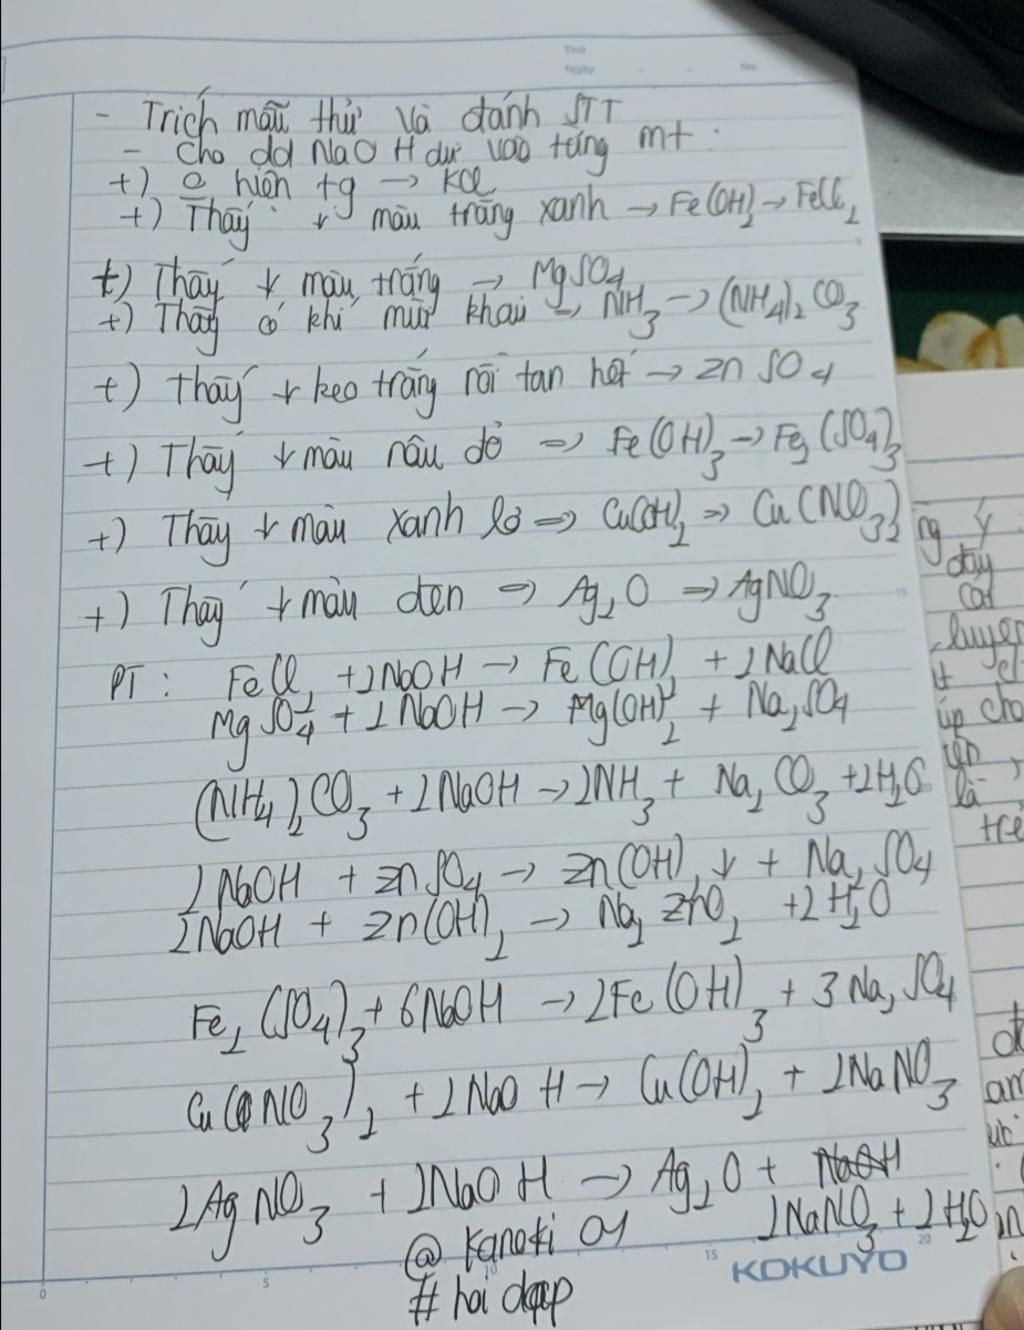 - Trích mẫu thử và đánh STT
- Cho dd NaOH dư vào từng mt.
+) o hiện tg → KCl
+) Thấy ↓ màu trắng xanh → Fe(OH)2 → FeCl2
+) Thấy ↓ màu trắng → MgSO4
+) Thấy có khí mùi khai → NH3 → (NH4)2CO3
+) Thấy ↓ keo trắng rồi tan hết → ZnSO4
+) Thấy ↓ màu nâu đỏ => Fe(OH)3 → Fe2(SO4)3
+) Thấy ↓ màu xanh lơ => Cu(OH)2 => Cu(NO3)2
+) Thấy ↓ màu đen => Ag2O => AgNO3
PT: FeCl2 + 2NaOH → Fe(OH)2 + 2NaCl
MgSO4 + 2NaOH → Mg(OH)2 + Na2SO4
(NH4)2CO3 + 2NaOH → 2NH3 + Na2CO3 + 2H2O
2NaOH + ZnSO4 → Zn(OH)2 ↓ + Na2SO4
2NaOH + Zn(OH)2 → Na2ZnO2 + 2H2O
Fe2(SO4)3 + 6NaOH → 2Fe(OH)3 + 3Na2SO4
Cu(NO3)2 + 2NaOH → Cu(OH)2 + 2NaNO3
2AgNO3 + 2NaOH → Ag2O + NaOH
2NaNO3 + 2H2O
@ Kaneki 04
# hoi dap
KOKUYO